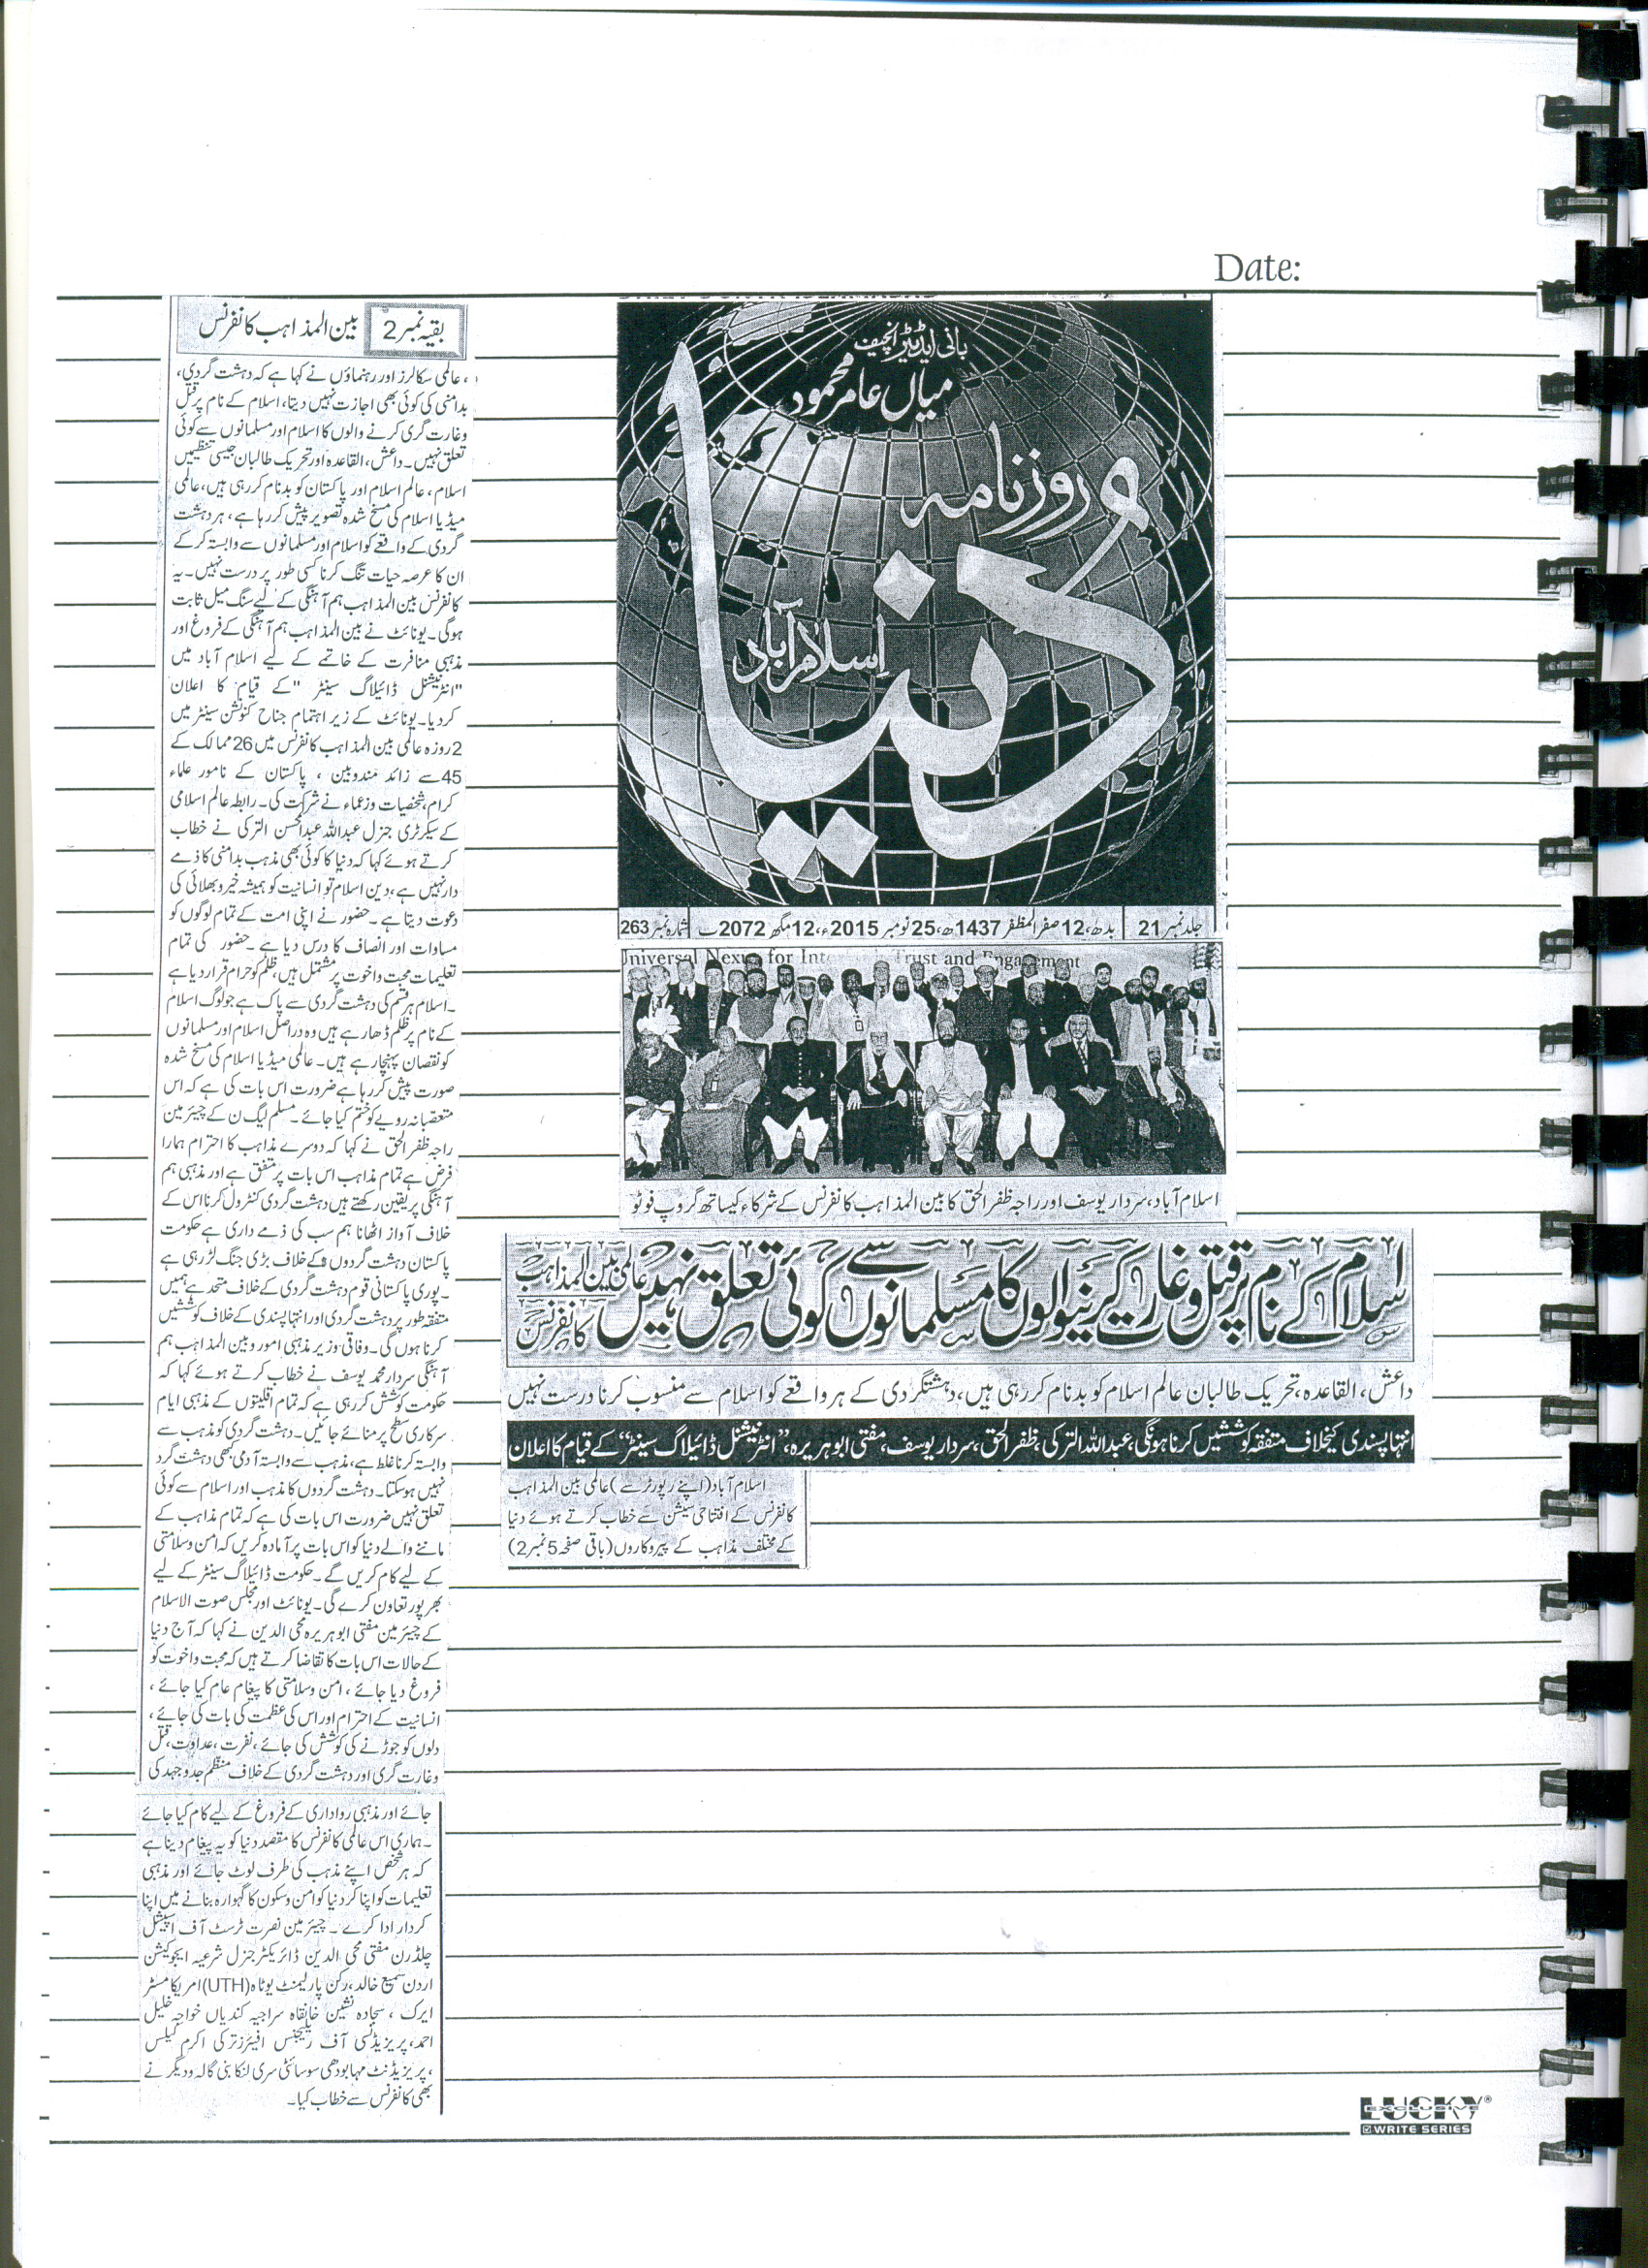 Date:
بانی ایڈیٹر انچیف
میاں عامر محمود
روزنامہ
دنیا
اسلام آباد
جلد نمبر 21 بدھ، 12 صفر المظفر 1437ھ، 25 نومبر 2015ء، 12 مگھر 2072ب شمارہ نمبر 263
Universal Nexus for Inte Trust and Engagement
اسلام آباد، سردار یوسف اور راجہ ظفر الحق کا بین المذاہب کانفرنس کے شرکاء کیساتھ گروپ فوٹو
اسلام کے نام پر قتل و غارت کرنیوالوں کا مسلمانوں سے کوئی تعلق نہیں عالمی بین المذاہب کانفرنس
داعش، القاعدہ، تحریک طالبان عالم اسلام کو بدنام کر رہی ہیں، دہشتگردی کے ہر واقعے کو اسلام سے منسوب کرنا درست نہیں
انتہا پسندی کیخلاف متفقہ کوششیں کرنا ہونگی، عبداللہ الترکی، ظفر الحق، سردار یوسف، مفتی ابو ہریرہ، ”انٹرنیشنل ڈائیلاگ سینٹر“ کے قیام کا اعلان
اسلام آباد (اپنے رپورٹر سے) عالمی بین المذاہب
کانفرنس کے افتتاحی سیشن سے خطاب کرتے ہوئے دنیا
کے مختلف مذاہب کے پیروکاروں (باقی صفحہ 5 نمبر 2)
بقیہ نمبر 2 بین المذاہب کانفرنس
، عالمی سکالرز اور رہنماؤں نے کہا ہے کہ دہشت گردی،
بدامنی کی کوئی بھی اجازت نہیں دیتا، اسلام کے نام پر قتل
وغارت گری کرنے والوں کا اسلام اور مسلمانوں سے کوئی
تعلق نہیں۔ داعش، القاعدہ اور تحریک طالبان جیسی تنظیمیں
اسلام، عالم اسلام اور پاکستان کو بدنام کر رہی ہیں، عالمی
میڈیا اسلام کی مسخ شدہ تصویر پیش کر رہا ہے، ہر دہشت
گردی کے واقعے کو اسلام اور مسلمانوں سے وابستہ کر کے
ان کا عرصہ حیات تنگ کرنا کسی طور پر درست نہیں۔ یہ
کانفرنس بین المذاہب ہم آہنگی کے لیے سنگ میل ثابت
ہوگی۔ یونائٹ نے بین المذاہب ہم آہنگی کے فروغ اور
مذہبی منافرت کے خاتمے کے لیے اسلام آباد میں
"انٹرنیشنل ڈائیلاگ سینٹر" کے قیام کا اعلان
کر دیا۔ یونائٹ کے زیر اہتمام جناح کنونشن سینٹر میں
2 روزہ عالمی بین المذاہب کانفرنس میں 26 ممالک کے
45 سے زائد مندوبین، پاکستان کے نامور علماء
کرام، شخصیات وزعماء نے شرکت کی۔ رابطہ عالم اسلامی
کے سیکرٹری جنرل عبداللہ عبدالحسن الترکی نے خطاب
کرتے ہوئے کہا کہ دنیا کا کوئی بھی مذہب بدامنی کا ذمے
دار نہیں ہے، دین اسلام تو انسانیت کو ہمیشہ خیر و بھلائی کی
دعوت دیتا ہے۔ حضور نے اپنی امت کے تمام لوگوں کو
مساوات اور انصاف کا درس دیا ہے۔ حضور کی تمام
تعلیمات محبت و اخوت پر مشتمل ہیں، ظلم کو حرام قرار دیا ہے
۔ اسلام ہر قسم کی دہشت گردی سے پاک ہے جو لوگ اسلام
کے نام پر ظلم ڈھا رہے ہیں وہ دراصل اسلام اور مسلمانوں
کو نقصان پہنچا رہے ہیں۔ عالمی میڈیا اسلام کی مسخ شدہ
صورت پیش کر رہا ہے ضرورت اس بات کی ہے کہ اس
متعصبانہ رویے کو ختم کیا جائے۔ مسلم لیگ ن کے چیئرمین
راجہ ظفر الحق نے کہا کہ دوسرے مذاہب کا احترام ہمارا
فرض ہے تمام مذاہب اس بات پر متفق ہے اور مذہبی ہم
آہنگی پر یقین رکھتے ہیں دہشت گردی کنٹرول کرنا اس کے
خلاف آواز اٹھانا ہم سب کی ذمے داری ہے حکومت
پاکستان دہشت گردوں کے خلاف بڑی جنگ لڑ رہی ہے
۔ پوری پاکستانی قوم دہشت گردی کے خلاف متحد ہے ہمیں
متفقہ طور پر دہشت گردی اور انتہا پسندی کے خلاف کوششیں
کرنا ہوں گی۔ وفاقی وزیر مذہبی امور و بین المذاہب ہم
آہنگی سردار محمد یوسف نے خطاب کرتے ہوئے کہا کہ
حکومت کوشش کر رہی ہے کہ تمام اقلیتوں کے مذہبی ایام
سرکاری سطح پر منائے جائیں۔ دہشت گردی کو مذہب سے
وابستہ کرنا غلط ہے، مذہب سے وابستہ آدمی کبھی دہشت گرد
نہیں ہوسکتا۔ دہشت گردوں کا مذہب اور اسلام سے کوئی
تعلق نہیں ضرورت اس بات کی ہے کہ تمام مذاہب کے
ماننے والے دنیا کو اس بات پر آمادہ کریں کہ امن و سلامتی
کے لیے کام کریں گے۔ حکومت ڈائیلاگ سینٹر کے لیے
بھرپور تعاون کرے گی۔ یونائٹ اور مجلس صوت الاسلام
کے چیئرمین مفتی ابو ہریرہ محی الدین نے کہا کہ آج دنیا
کے حالات اس بات کا تقاضا کرتے ہیں کہ محبت و اخوت کو
فروغ دیا جائے، امن و سلامتی کا پیغام عام کیا جائے،
انسانیت کے احترام اور اس کی عظمت کی بات کی جائے،
دلوں کو جوڑنے کی کوشش کی جائے، نفرت، عداوت، قتل
وغارت گری اور دہشت گردی کے خلاف منظم جدوجہد کی
جائے اور مذہبی رواداری کے فروغ کے لیے کام کیا جائے
۔ ہماری اس عالمی کانفرنس کا مقصد دنیا کو یہ پیغام دینا ہے
کہ ہر شخص اپنے مذہب کی طرف لوٹ جائے اور مذہبی
تعلیمات کو اپنا کر دنیا کو امن و سکون کا گہوارہ بنانے میں اپنا
کردار ادا کرے۔ چیئرمین نصرت ٹرسٹ آف اسپیشل
چلڈرن مفتی محی الدین ڈائریکٹر جنرل شرعیہ ایجوکیشن
اردن سمیع خالد، رکن پارلیمنٹ یوٹاہ (UTH) امریکا مسٹر
ایرک، سجادہ نشین خانقاہ سراجیہ کندیاں خواجہ خلیل
احمد، پریزیڈنسی آف ریلیجس افیئرز ترکی اکرم کیلس
، پریزیڈنٹ مہا بودھی سوسائٹی سری لنکا بنی گالہ و دیگر نے
بھی کانفرنس سے خطاب کیا۔
LUCKY
EXCLUSIVE
WRITE SERIES